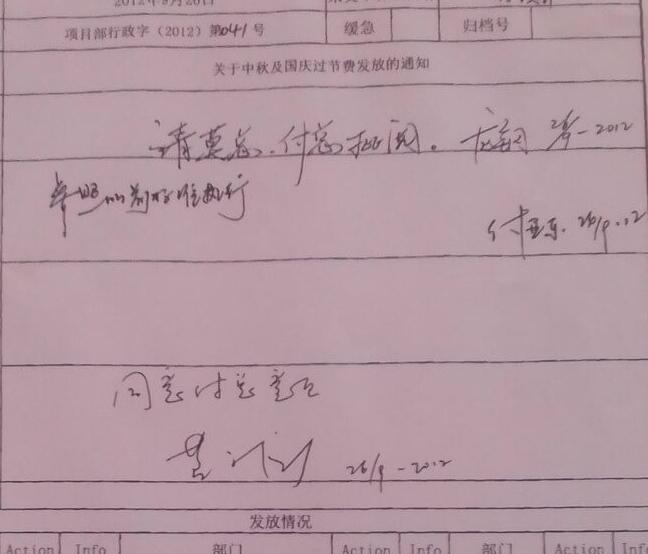 2012年9月26日
项目部行政字（2012）第041号 缓急 归档号
关于中秋及国庆过节费发放的通知
请莫总、付总批阅。 26/9-2012
参照以前标准执行
付亚东 26/9.12
同意付总意见
26/9-2012
发放情况
Action Info 部门 Action Info 部门 Action Inf